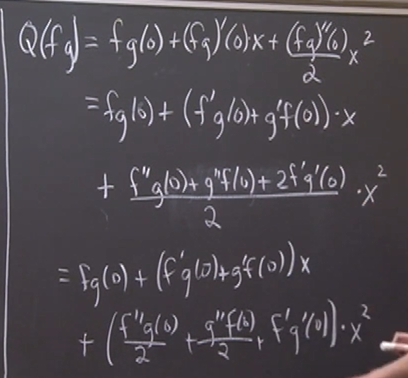 Q(fg) = fg(0) + (fg)'(0)·x + (fg)''(0)/2 x²
= fg(0) + (f'g(0) + g'f(0))·x
+ (f''g(0) + g''f(0) + 2f'g'(0))/2 · x²
= fg(0) + (f'g(0) + g'f(0))x
+ (f''g(0)/2 + g''f(0)/2 + f'g'(0))·x²